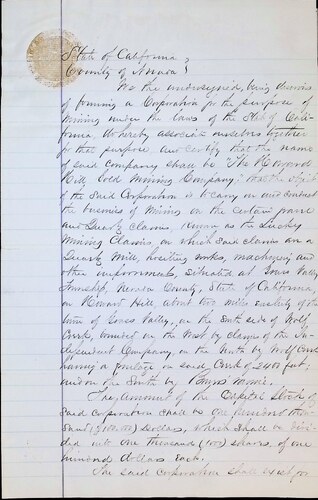 State of California }
County of Nevada }
We the undersigned, being desirous
of forming a Corporation for the purpose of
Mining under the laws of the State of Cali-
fornia, do hereby associate ourselves together
for that purpose and certify that the name
of said company shall be "The Howard
Hill Gold Mining Company," that the object
of the Said Corporation is to carry on and conduct
the business of Mining on the certain
and Quartz claims, known as the Lucky
Mining Claims, on which said claims are a
Quartz Mill, hoisting works, machinery and
other improvements, situated at Grass Valley
Township, Nevada County, State of California,
on Howard Hill about two miles easterly of the
town of Grass Valley, on the South side of Wolf
Creek, bounded on the West by claims of the In-
dependent Company, on the North by Wolf Creek
having a frontage on said Creek of 2400 feet;
and on the South by
The amount of the Capital Stock of
Said corporation shall be One hundred thou-
sand (100,000) Dollars, which shall be divi-
ded into one thousand (1000) shares, of one
hundred dollars each.
The said corporation shall exist for